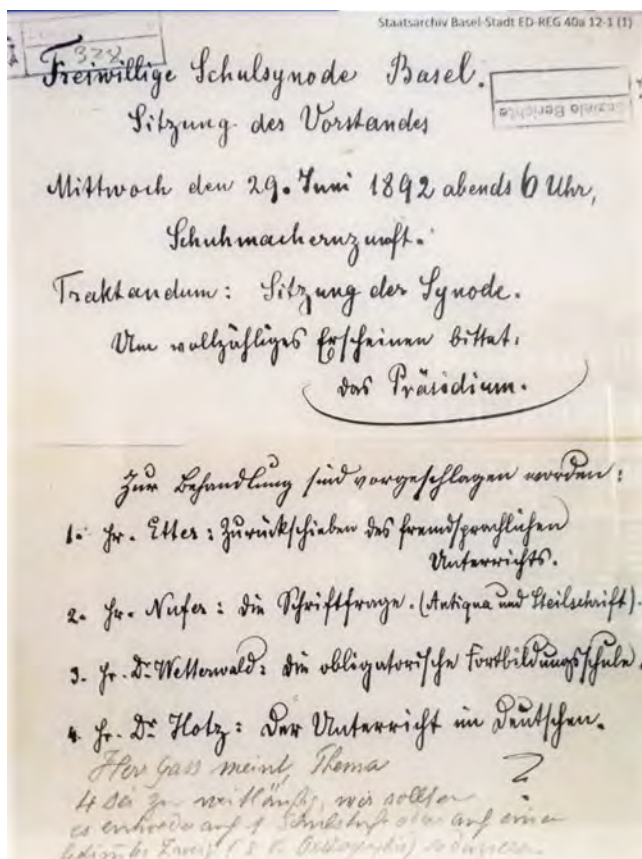 Staatsarchiv Basel-Stadt ED-REG 40a 12-1 (1)
328
Soziale Berichte
Freiwillige Schulsynode Basel.
Sitzung des Vorstandes
Mittwoch den 29. Juni 1892 abends 6 Uhr,
Schuhmachernzunft.
Traktandum: Sitzung der Synode.
Um vollzähliges Erscheinen bittet:
das Präsidium.
Zur Behandlung sind vorgeschlagen worden:
1. Hr. Etter: Zurückschieben des fremdsprachlichen
Unterrichts.
2. Hr. Nufer: die Schriftfrage. (Antiqua und Steilschrift).
3. Hr. Dr Wetterwald: die obligatorische Fortbildungsschule.
4. Hr. Dr Hotz: Der Unterricht im Deutschen.
Herr Gass meint, Thema ?
4 sei zu weitläufig, wir sollten
es entweder auf 1 Schulstufe oder auf einen